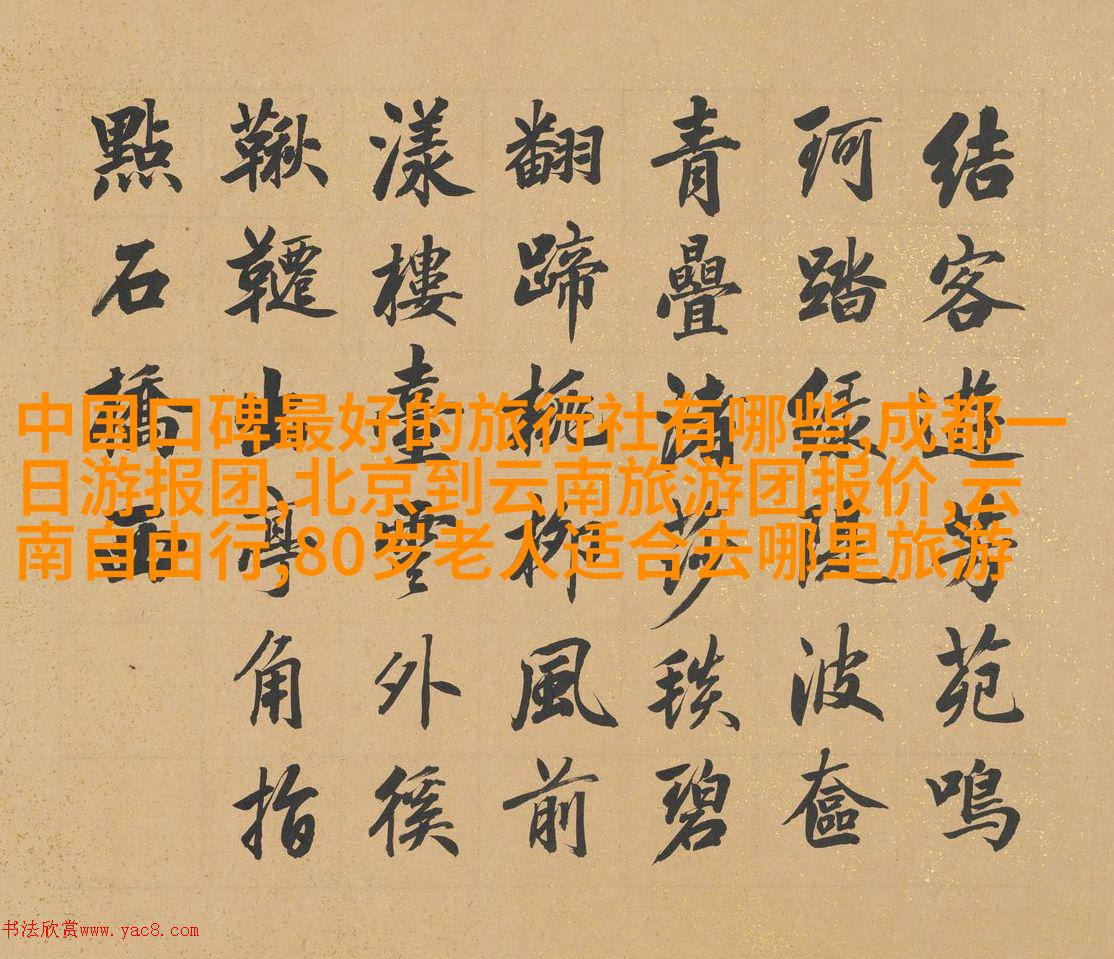 結客遊芳苑鳴
珂踏緩隄波奩
青疊莎毯碧
翻蹄桃柳風前
漾樓臺雲外徯
鞦韆山角指
點石橋西
中国口碑最好的旅行社有哪些,成都一
日游报团,北京到云南旅游团报价,云
南自由行,80岁老人适合去哪里旅游
书法欣赏www.yac8.com